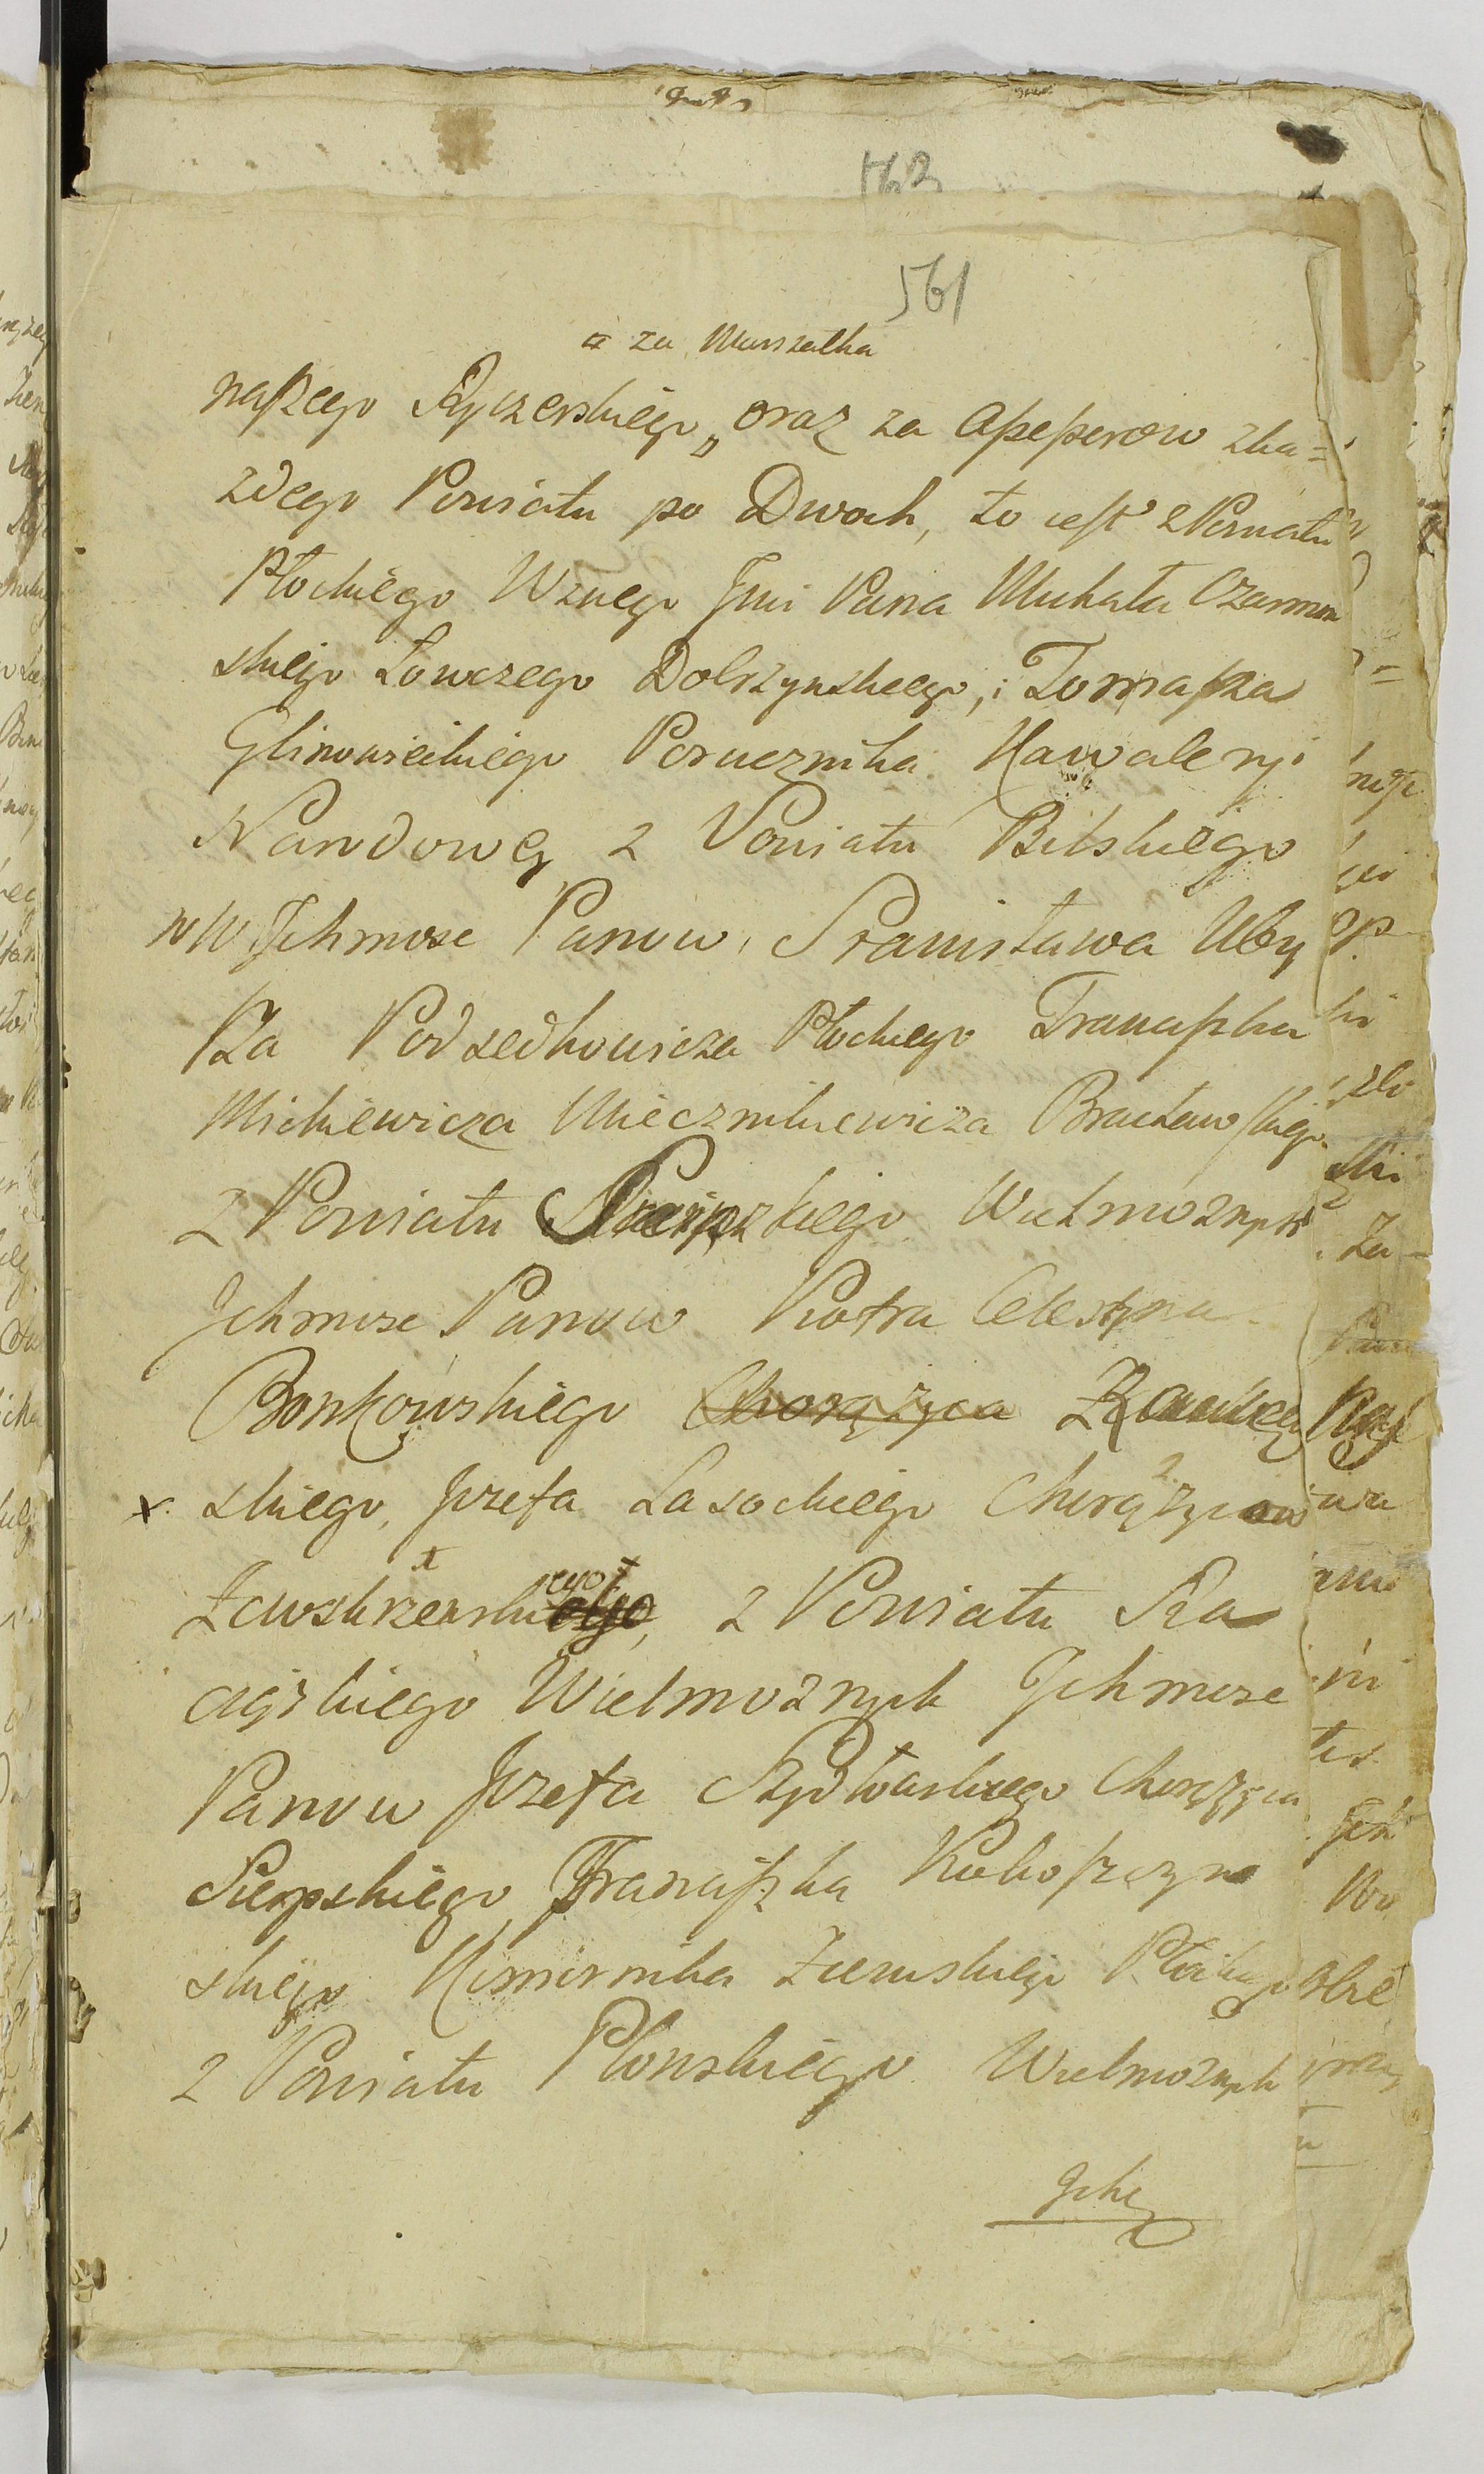 563
561
a za Marszałka
naszego Rycerskiego, oraz za Assessorow zka=
zdego Powiatu po Dwoch, to iest z Powiatu
Płockiego Wznego Jmi Pana Michała Czarnom
skiego Łowczego Dobrzynskiego, i Tomasza
Glinowieckiego Porucznika Kawaleryi
Narodowey z Powiatu Bilskiego
WW Ichmosc Panow, Stanisława Uby
sza Podsedkowicza Płockiego Franciszka
Mickiewicza Miecznikiewicza Bracławskiego
z Powiatu Wielmoznych
Ichmosc Panow Piotra Celestyna
Bonkowskiego Chorążyca
x skiego, Jozefa Lasockiego Chorążyca
Zawskrzenskiego, z Powiatu Ra
ciązkiego Wielmoznych Ichmosc
Panow Jozefa Szydłowskiego Chorążyca
Sierpskiego, Franciszka Kokoszczyn
skiego Komornika Ziemskiego Płockiego
z Powiatu Płonskiego Wielmoznych
Ichm